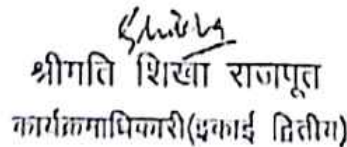 श्रीमति शिखा राजपूत
कार्यक्रमाधिकारी(इकाई द्वितीय)